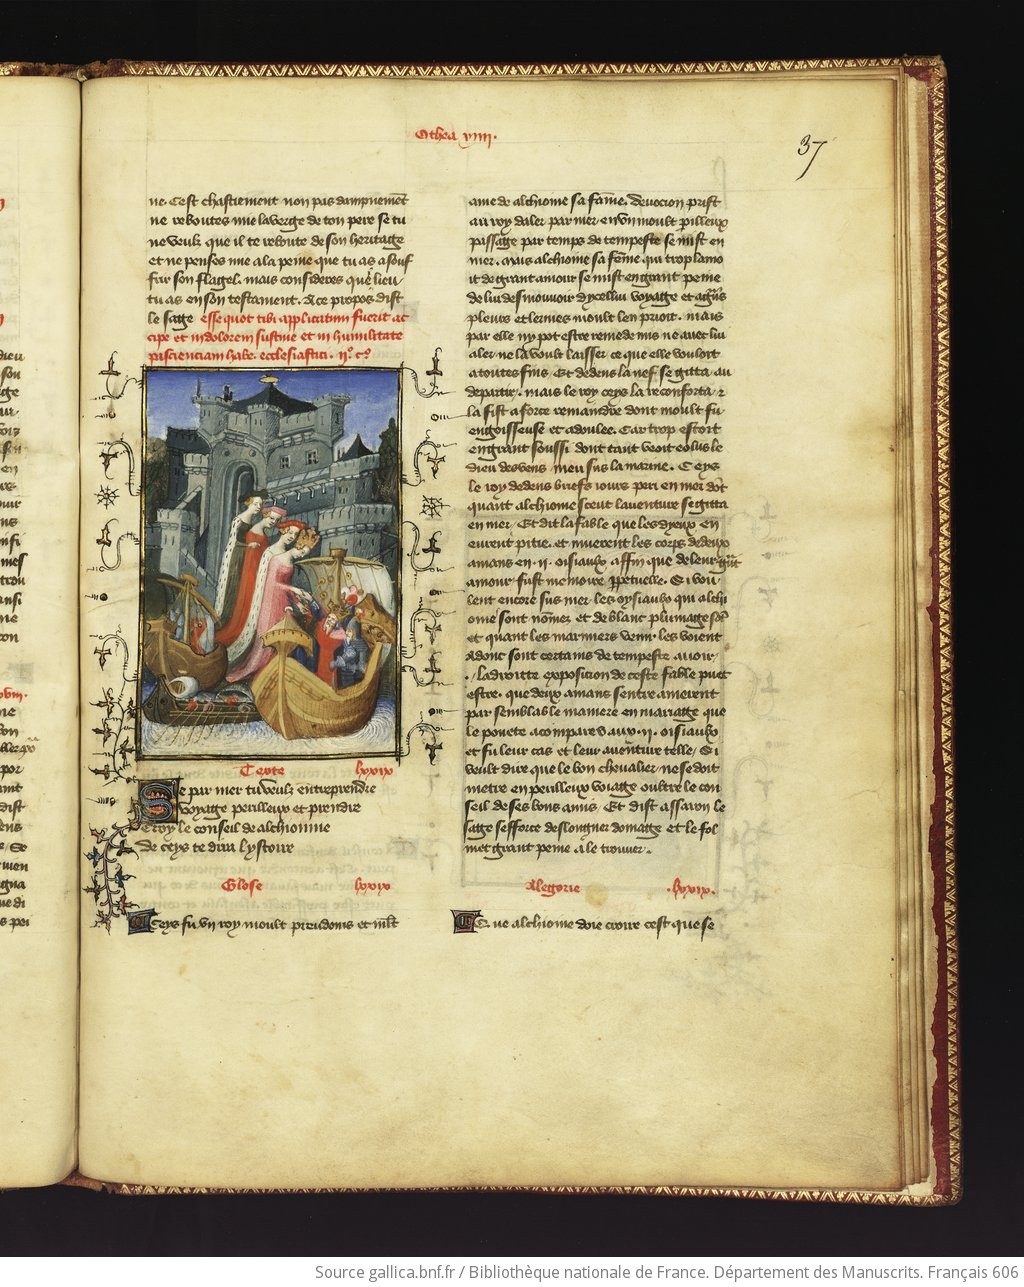 Othea viiii.
37
ne. Cest chastiement non pas dampnemēt
ne reboutes mie la verge de ton pere se tu
ne veulz que il te reboute de son heritage
et ne penses mie a la peine que tu as a souf
frir son flagel. mais consideres quel lieu
tu as en son testament. A ce propos dist
le sage esse quot tibi applicatum fuerit ac
cipe et in dolorem sustine et in humilitate
pascienciam habe. ecclesiastici. ijº cº
Texte lxxix
Se par mer tu veulz entreprendre
voyage perilleux et prendre
Croy le conseil de alchionne
de ceys te dira lystoire
Glose lxxix
Ceys fu vn roy moult preudoms et mlt
ame de alchione sa fāme. devocion prist
au roy daler par mer en vn moult perilleux
passage par temps de tempeste se mist en
mer. mais alchione sa fēme qui trop lamo
it de grant amour se mist en grant peine
de lui desmouvoir dycellui voyage et a grās
pleurs et lermes moult len prioit. mais
par elle ny pot estre remede mis ne avec lui
aler ne la voult laisser ce que elle vouloit
a toutes fins. Et dedens la nef se gitta au
departir. mais le roy ceys la reconforta z
la fist a force remaindre dont moult fu
engoisseuse et adoulee. Car trop estoit
en grant soussi dont tant veoit eolus le
dieu des vens meu sus la marine. Ceys
le roy dedens briefs iours peri en mer dōt
quant alchione sceut laventure se gitta
en mer. Et dit la fable que les dyeux en
eurent pitie. et muerent les corps de deux
amans en .ii. oisiaux affin que de leur grāt
amour fust memoire ppetuelle. Si vou
lent encore sus mer les oysiaulx qui alchi
one sont nōmez et de blanc plumage sōt
et quant les mariniers venir les voient
Adonc sont certains de tempeste avoir
la droitte exposicion de ceste fable puet
estre. que deux amans sentre amerent
par semblable maniere en mariage que
le pouete acompare aux .ii. oisiaulx
et fu leur cas et leur aventure telle. Si
veult dire que le bon chevalier ne se doit
metre en perilleux voiage oultre le con
seil de ses bons amis. Et dist assaron le
sage sefforce deslongner domage et le fol
met grant peine a le trouver.
Alegorie .lxxix.
Que alchione doie croire cest que se
Source gallica.bnf.fr / Bibliothèque nationale de France. Département des Manuscrits. Français 606